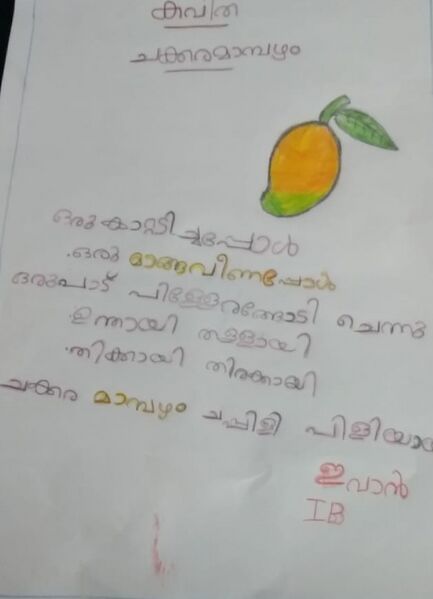 കവിത
ചക്കരമാമ്പഴം
ഒരു കാറ്റടിച്ചപ്പോൾ
.ഒരു മാങ്ങവീണപ്പോൾ
ഒരുപാട് പിള്ളേരങ്ങോടി ചെന്നു
.ഉന്തായി തള്ളായി
.തിക്കായി തിരക്കായി
ചക്കര മാമ്പഴം ചപ്പിളി പിളിയായ
ഇവാൻ
IB